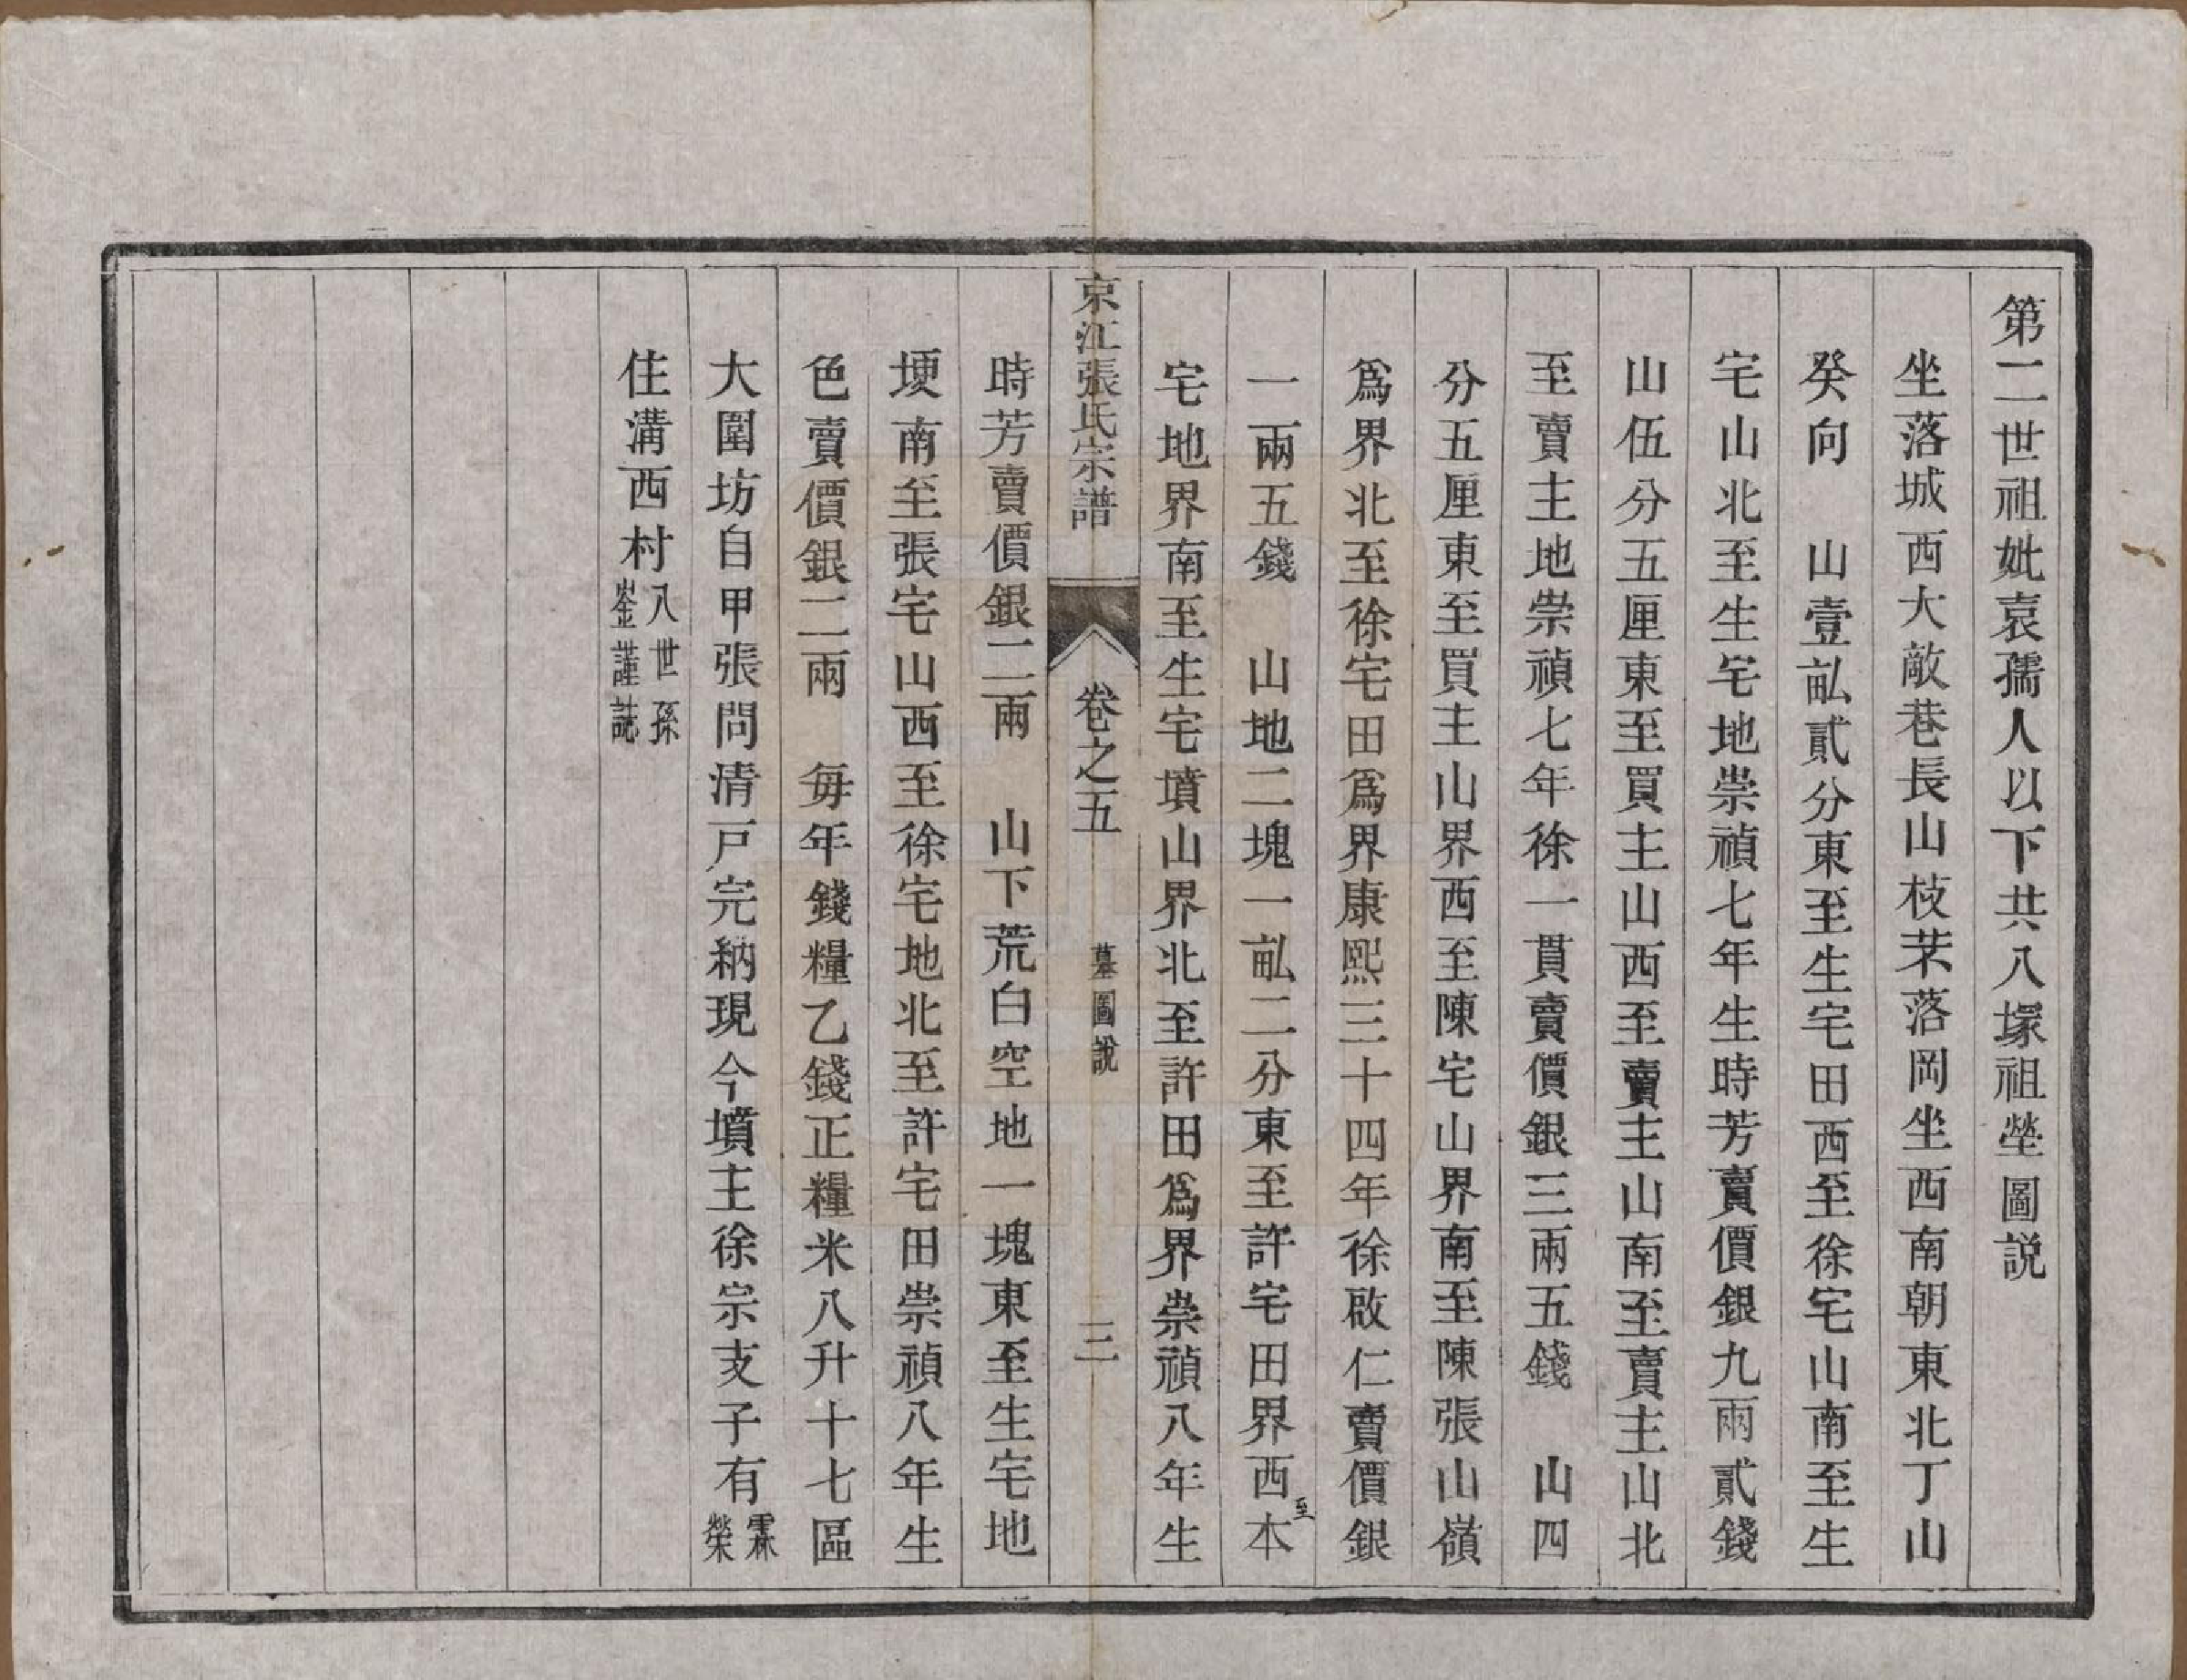 第二世祖妣袁孺人以下共八塚祖塋圖説
坐落城西大敵巷長山枝芣落岡坐西南朝東北丁山
癸向　山壹畆貳分東至生宅田西至徐宅山南至生
宅山北至生宅地崇禎七年生時芳賣價銀九兩貳錢
山伍分五厘東至買主山西至賣主山南至賣主山北
至賣主地崇禎七年徐一貫賣價銀三兩五錢　山四
分五厘東至買主山界西至陳宅山界南至陳張山嶺
爲界北至徐宅田爲界康熙三十四年徐啟仁賣價銀
一兩五錢　山地二塊一畆二分東至許宅田界西至本
宅地界南至生宅墳山界北至許田爲界崇禎八年生
京江張氏宗譜　卷之五　墓圖說　三
時芳賣價銀二兩　山下荒白空地一塊東至生宅地
埂南至張宅山西至徐宅地北至許宅田崇禎八年生
色賣價銀二兩　每年錢糧乙錢正糧米八升十七區
大圍坊自甲張問清戸完納現今墳主徐宗支子有霖榮
住溝西村八世孫崟謹誌